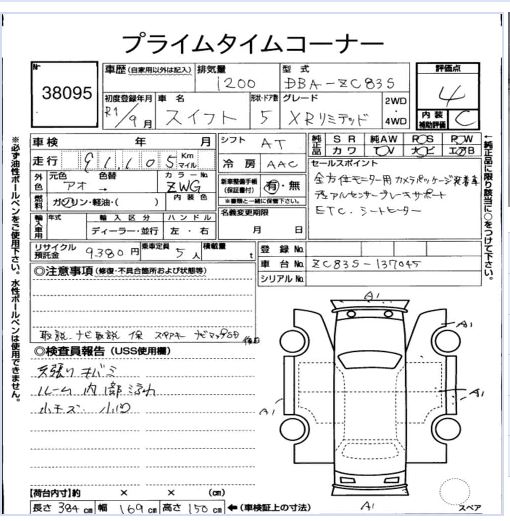 プライムタイムコーナー
No 38095
車歴 (自家用以外は記入) 排気量 1200 型式 DBA-ZC83S
評価点 4
内装補助評価 C
初度登録年月 R1/9月 車名 スイフト 形状・ドア数 5 グレード XRリミテッド 2WD・4WD
車検 年 月
シフト AT
純正品 SR 純AW PS PW
カワ TV ナビ エアB
走行 91,105 Km マイル
冷房 AAC
セールスポイント
全方位モニター用カメラパッケージ装着車
デュアルセンサーブレーキサポート
ETC. シートヒーター
外色 元色 アオ → 色替 カラーNo ZWG
内装色
燃料 ガソリン・軽油・( )
新車整備手帳(保証書付) 有・無
※書類と一緒に保管下さい。
名義変更期限 月 日
輸入車用 年式 輸入区分 ディーラー・並行 ハンドル 左・右
リサイクル預託金 9380円 乗車定員 5人 積載量 t
登録No.
車台No. ZC83S-137045
シリアルNo.
◎注意事項 (修復・不具合箇所および状態等)
取説 ナビ取説 保 スペアキー
◎検査員報告 (USS使用欄)
天張りキバミ
ルーム内部汚れ
小キズ 小凹
A1
A1
A1
A1
A1
スペア
【荷台内寸】約 × × (cm)
長さ 384cm 幅 169cm 高さ 150cm ←(車検証上の寸法)
※必ず油性ボールペンをご使用下さい。水性ボールペンは使用できません。
←純正品に限り該当に○をつけて下さい。